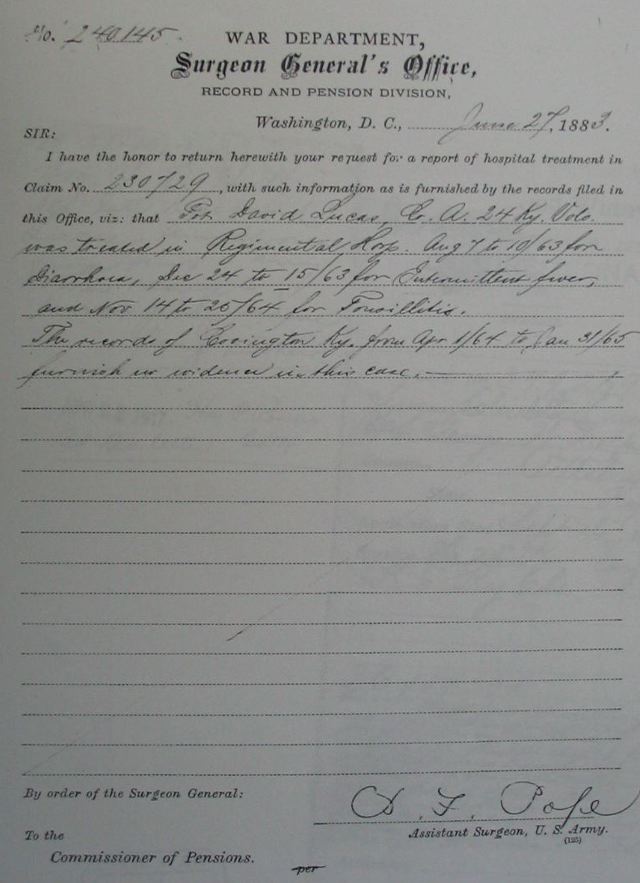 No. 240.145.
WAR DEPARTMENT,
Surgeon General's Office,
RECORD AND PENSION DIVISION,
Washington, D. C., June 27, 1883.
SIR:
I have the honor to return herewith your request for a report of hospital treatment in
Claim No. 230729, with such information as is furnished by the records filed in
this Office, viz: that Pvt. David Lucas, Co. A. 24 Ky. Vols.
was treated in Regimental Hosp. Aug 7 to 10/63 for
Diarrhoea, Dec 24 to 15/63 for Intermittent fever,
and Nov 14 to 25/64 for Tonsillitis.
The records of Covington Ky. from Apr 1/64 to Jan 31/65
furnish no evidence in this case. —
By order of the Surgeon General:
D. F. Pope
Assistant Surgeon, U. S. Army.
(125)
To the
Commissioner of Pensions.
per